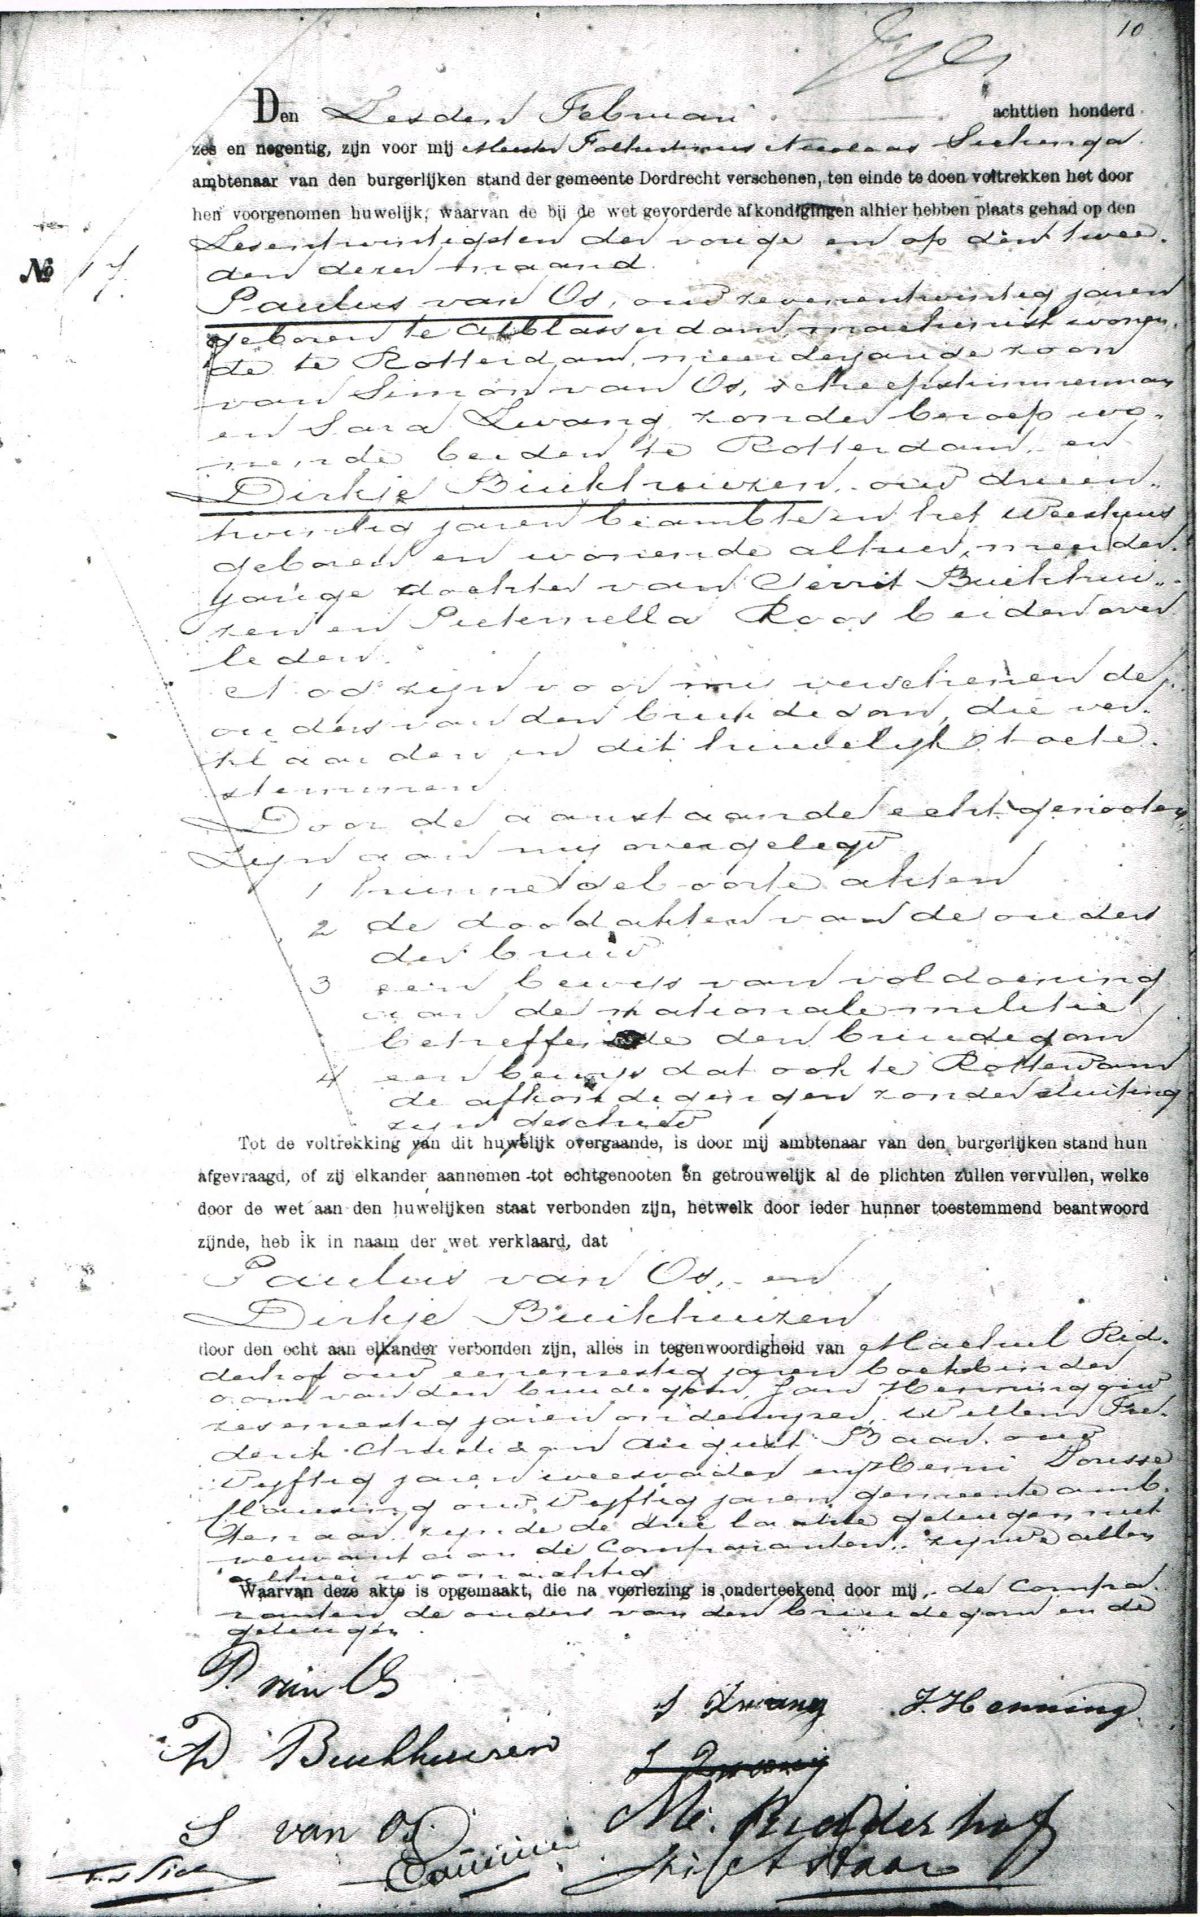 10
Den Zesden Februari achttien honderd
zes en negentig, zijn voor mij Meester Nicolaas Sickenga
ambtenaar van den burgerlijken stand der gemeente Dordrecht verschenen, ten einde te doen voltrekken het door
hen voorgenomen huwelijk, waarvan de bij de wet gevorderde afkondigingen alhier hebben plaats gehad op den
Zesentwintigsten der vorige en op den twee-
den dezer maand.
No 17.
Paulus van Os, oud zevenentwintig jaren
geboren te Alblasserdam, machinist wonen-
de te Rotterdam, meerderjarige zoon
van Simon van Os, scheepstimmerman
en Sara Zwang zonder beroep wo-
nende beiden te Rotterdam, en
Dirkje Buikhuizen, oud drieen-
twintig jaren beambte in het Weeshuis
geboren en wonende alhier, meerder-
jarige dochter van Gerrit Buikhui-
zen en Pieternella Roos beiden over
leden.
Nog zijn voor mij verschenen de
ouders van den bruidegom, die ver-
klaarden in dit huwelijk toete-
stemmen
Door de aanstaande echtgenooten
zijn aan mij overgelegd
1 hunne geboorte akten
2 de doodakten van de ouders
der bruid
3 een bewijs van voldoening
aan de nationale militie
betreffende den bruidegom
4 een bewijs dat ook te Rotterdam
de afkondigingen zonder stuiting
zijn geschied
Tot de voltrekking van dit huwelijk overgaande, is door mij ambtenaar van den burgerlijken stand hun
afgevraagd, of zij elkander aannemen tot echtgenooten en getrouwelijk al de plichten zullen vervullen, welke
door de wet aan den huwelijken staat verbonden zijn, hetwelk door ieder hunner toestemmend beantwoord
zijnde, heb ik in naam der wet verklaard, dat
Paulus van Os, en
Dirkje Buikhuizen
door den echt aan elkander verbonden zijn, alles in tegenwoordigheid van Machiel Rid-
derhof oud eenenzestig jaren boekbinder
oom van den bruidegom, Jan Henning oud
zesenzestig jaren onderwijzer, Willem Fre-
derik Christiaan August Baar oud
Vijftig jaren weesvader en Henri
oud Vijftig jaren gemeente amb-
tenaar zijnde de drie laatste getuigen niet
verwant aan de Comparanten, zijnde allen
alhier woonachtig
Waarvan deze akte is opgemaakt, die na voorlezing is onderteekend door mij, de Compa-
ranten de ouders van den bruidegom en de
getuigen.
P. van Os
S Zwang J. Henning
D Buikhuizen
S Zwang
S van Os
M. Ridderhof